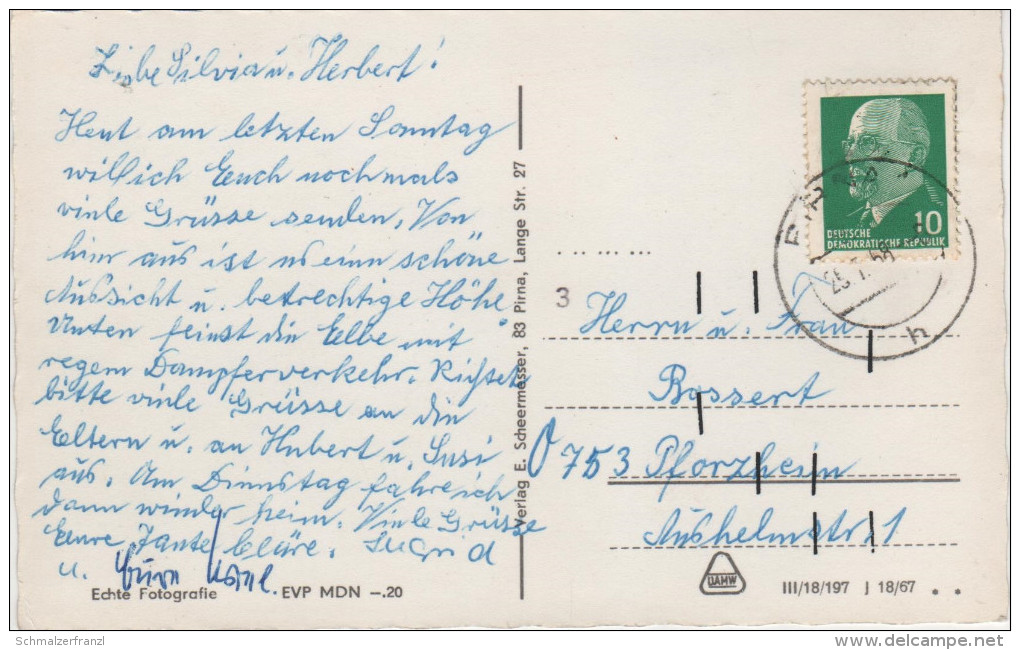 Liebe Silvia u. Herbert!
Heut am letzten Sonntag
will ich Euch nochmals
viele Grüsse senden. Von
hier aus ist es eine schöne
Aussicht u. betrechtige Höhe
Unten feinst die Elbe mit
regem Dampferverkehr. Richtet
bitte viele Grüsse an die
Eltern u. an Hubert u. Susi
aus. Am Dienstag fahre ich
dann wieder heim. Viele Grüsse
Eure Tante Cläre. Sugrid
u.
Echte Fotografie EVP MDN –.20
Verlag E. Scheermesser, 83 Pirna, Lange Str. 27
10
DEUTSCHE
DEMOKRATISCHE REPUBLIK
h
3
Herrn u. Frau
Bossert
753 Pforzheim
Aushelmstr. 1
DAMW
III/18/197 J 18/67
Schmalzerfranzl
www.delcampe.net